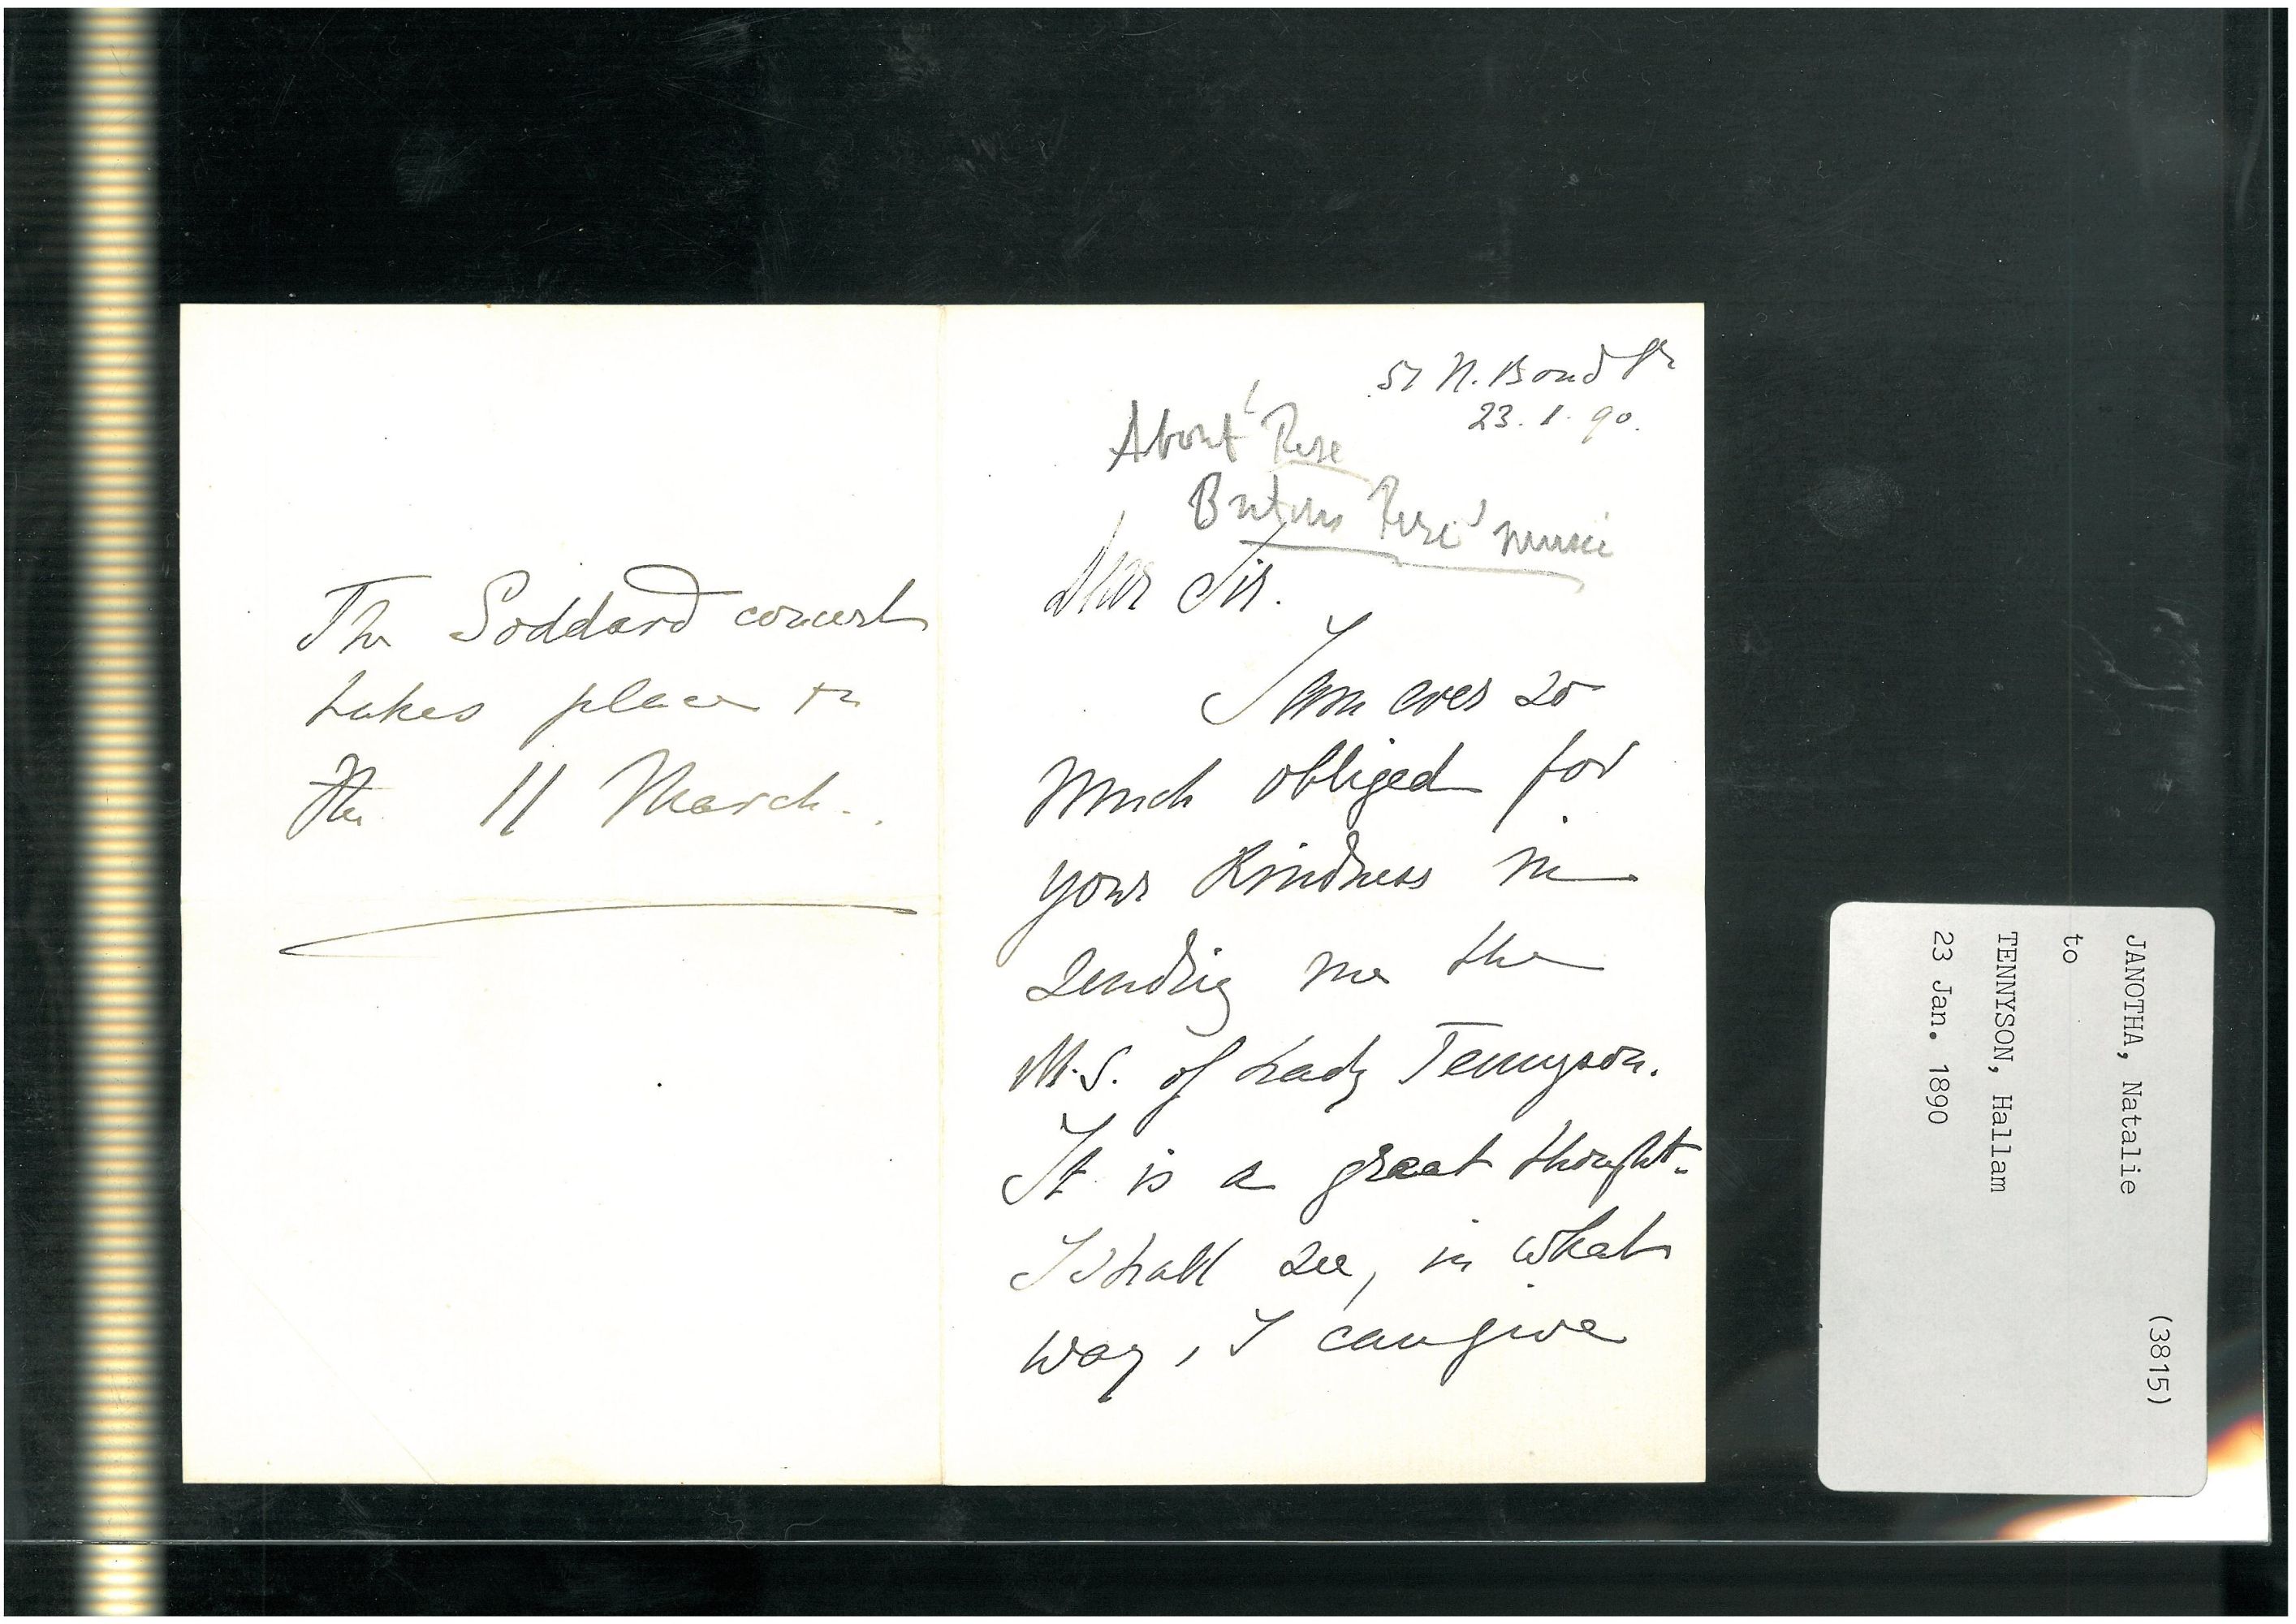 The Goddard concert
takes place on
the 11 March.
57 N. Bond Str
23. 1. 90.
About 'Rise
Britons Rise' music
Dear Sir.
I am ever so
much obliged for
your kindness in
sending me the
M.S. of Lady Tennyson.
It is a great thought.
I shall see, in what
way, I can give
JANOTHA, Natalie (3815)
to
TENNYSON, Hallam
23 Jan. 1890